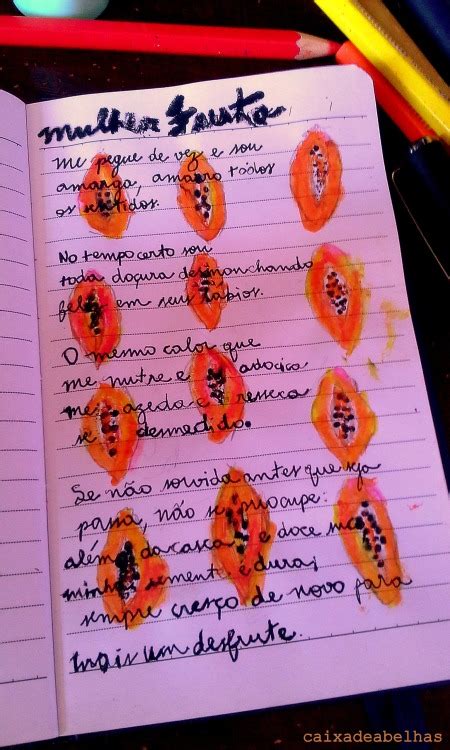 Mulher Fruta
Me pegue de vez e sou
amarga, amarro todos
os sentidos.
No tempo certo sou
toda doçura desmanchando
em seus lábios.
O mesmo calor que
me nutre e adoçica
me azeda e resseca
se desmedido.
Se não sorvida antes que seja
passa, não se preocupe:
além da casca e doce
minha semente é dura;
sempre cresço de novo para
mais um desfrute.
caixadeabelhas